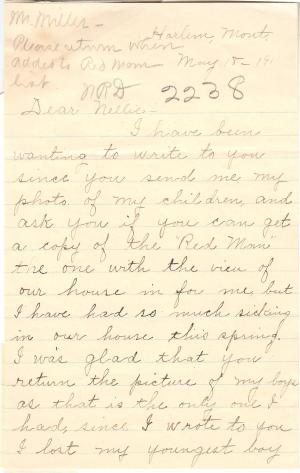 Mr. Miller -
Harlem, Mont,
Please return when
added to Red Man
May 18 - 191
list
NRD
2238
Dear Nellie -
I have been
wanting to write to you
since you send me my
photo of my children, and
ask you if you can get
a copy of the "Red Man"
the one with the view of
our house in for me, but
I have had so much sicking
in our house this spring.
I was glad that you
return the picture of my boys
as that is the only one I
had, since I wrote to you
I lost my youngest boy